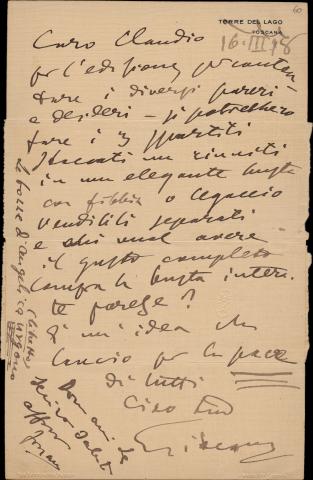 TORRE DEL LAGO
TOSCANA
16. III. 18
Caro Claudio
per l'edizione, per conten-
tare i diversi pareri
e desideri – si potrebbero
fare i 3 spartiti
staccati ma riuniti
in una elegante busta
con fibbia o legaccio
vendibili separati
e chi vuol avere
il gusto completo
compra la busta intera.
te parege?
È un'idea che
lancio per la pace
di tutti
Ciao tuo
Giacomo
Le bozze d'angelica (libretto)
urgono
Domani da